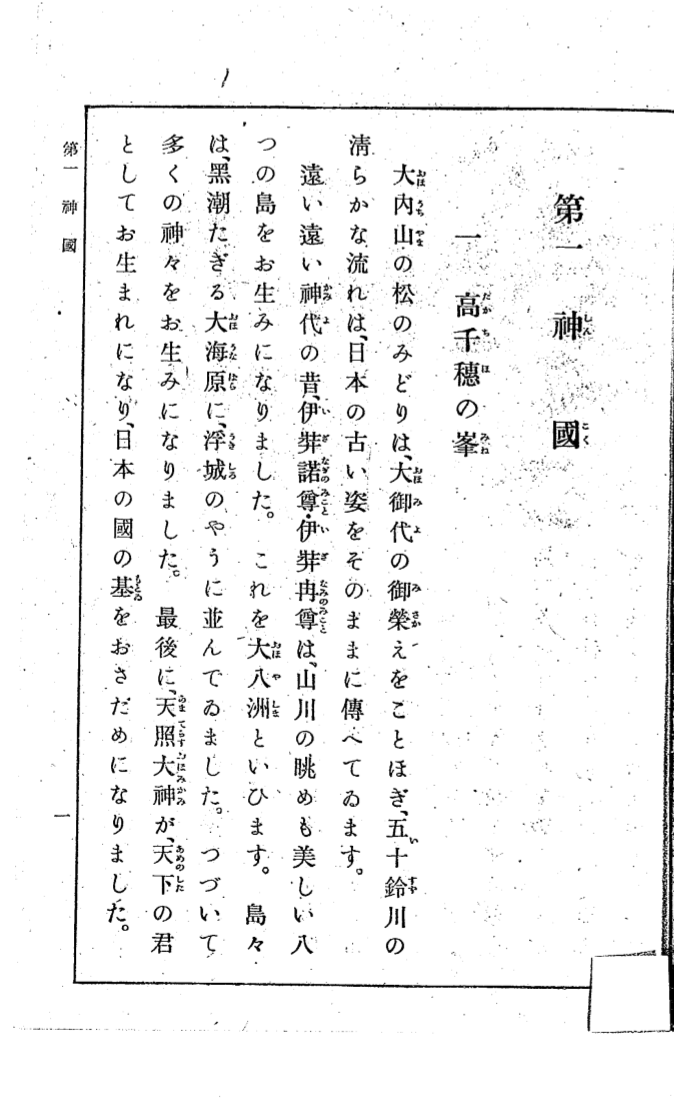 第一 神國
一 高千穗の峯
大内山の松のみどりは、大御代の御榮えをことほぎ、五十鈴川の
淸らかな流れは、日本の古い姿をそのままに傳へてゐます。
遠い遠い神代の昔、伊弉諾尊・伊弉冉尊は、山川の眺めも美しい八
つの島をお生みになりました。これを大八洲といひます。島々
は、黑潮たぎる大海原に、浮城のやうに並んでゐました。つづいて
多くの神々をお生みになりました。最後に、天照大神が、天下の君
としてお生まれになり、日本の國の基をおさだめになりました。
第一 神國
一